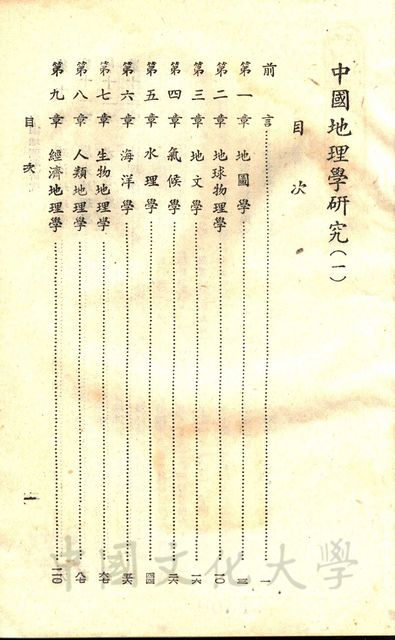 中國地理學研究(一)
目次
前言……一
第一章 地圖學……三
第二章 地球物理學……一〇
第三章 地文學……一六
第四章 氣候學
第五章 水理學
第六章 海洋學……五六
第七章 生物地理學……六七
第八章 人類地理學……八七
第九章 經濟地理學
目次
一
中國文化大學